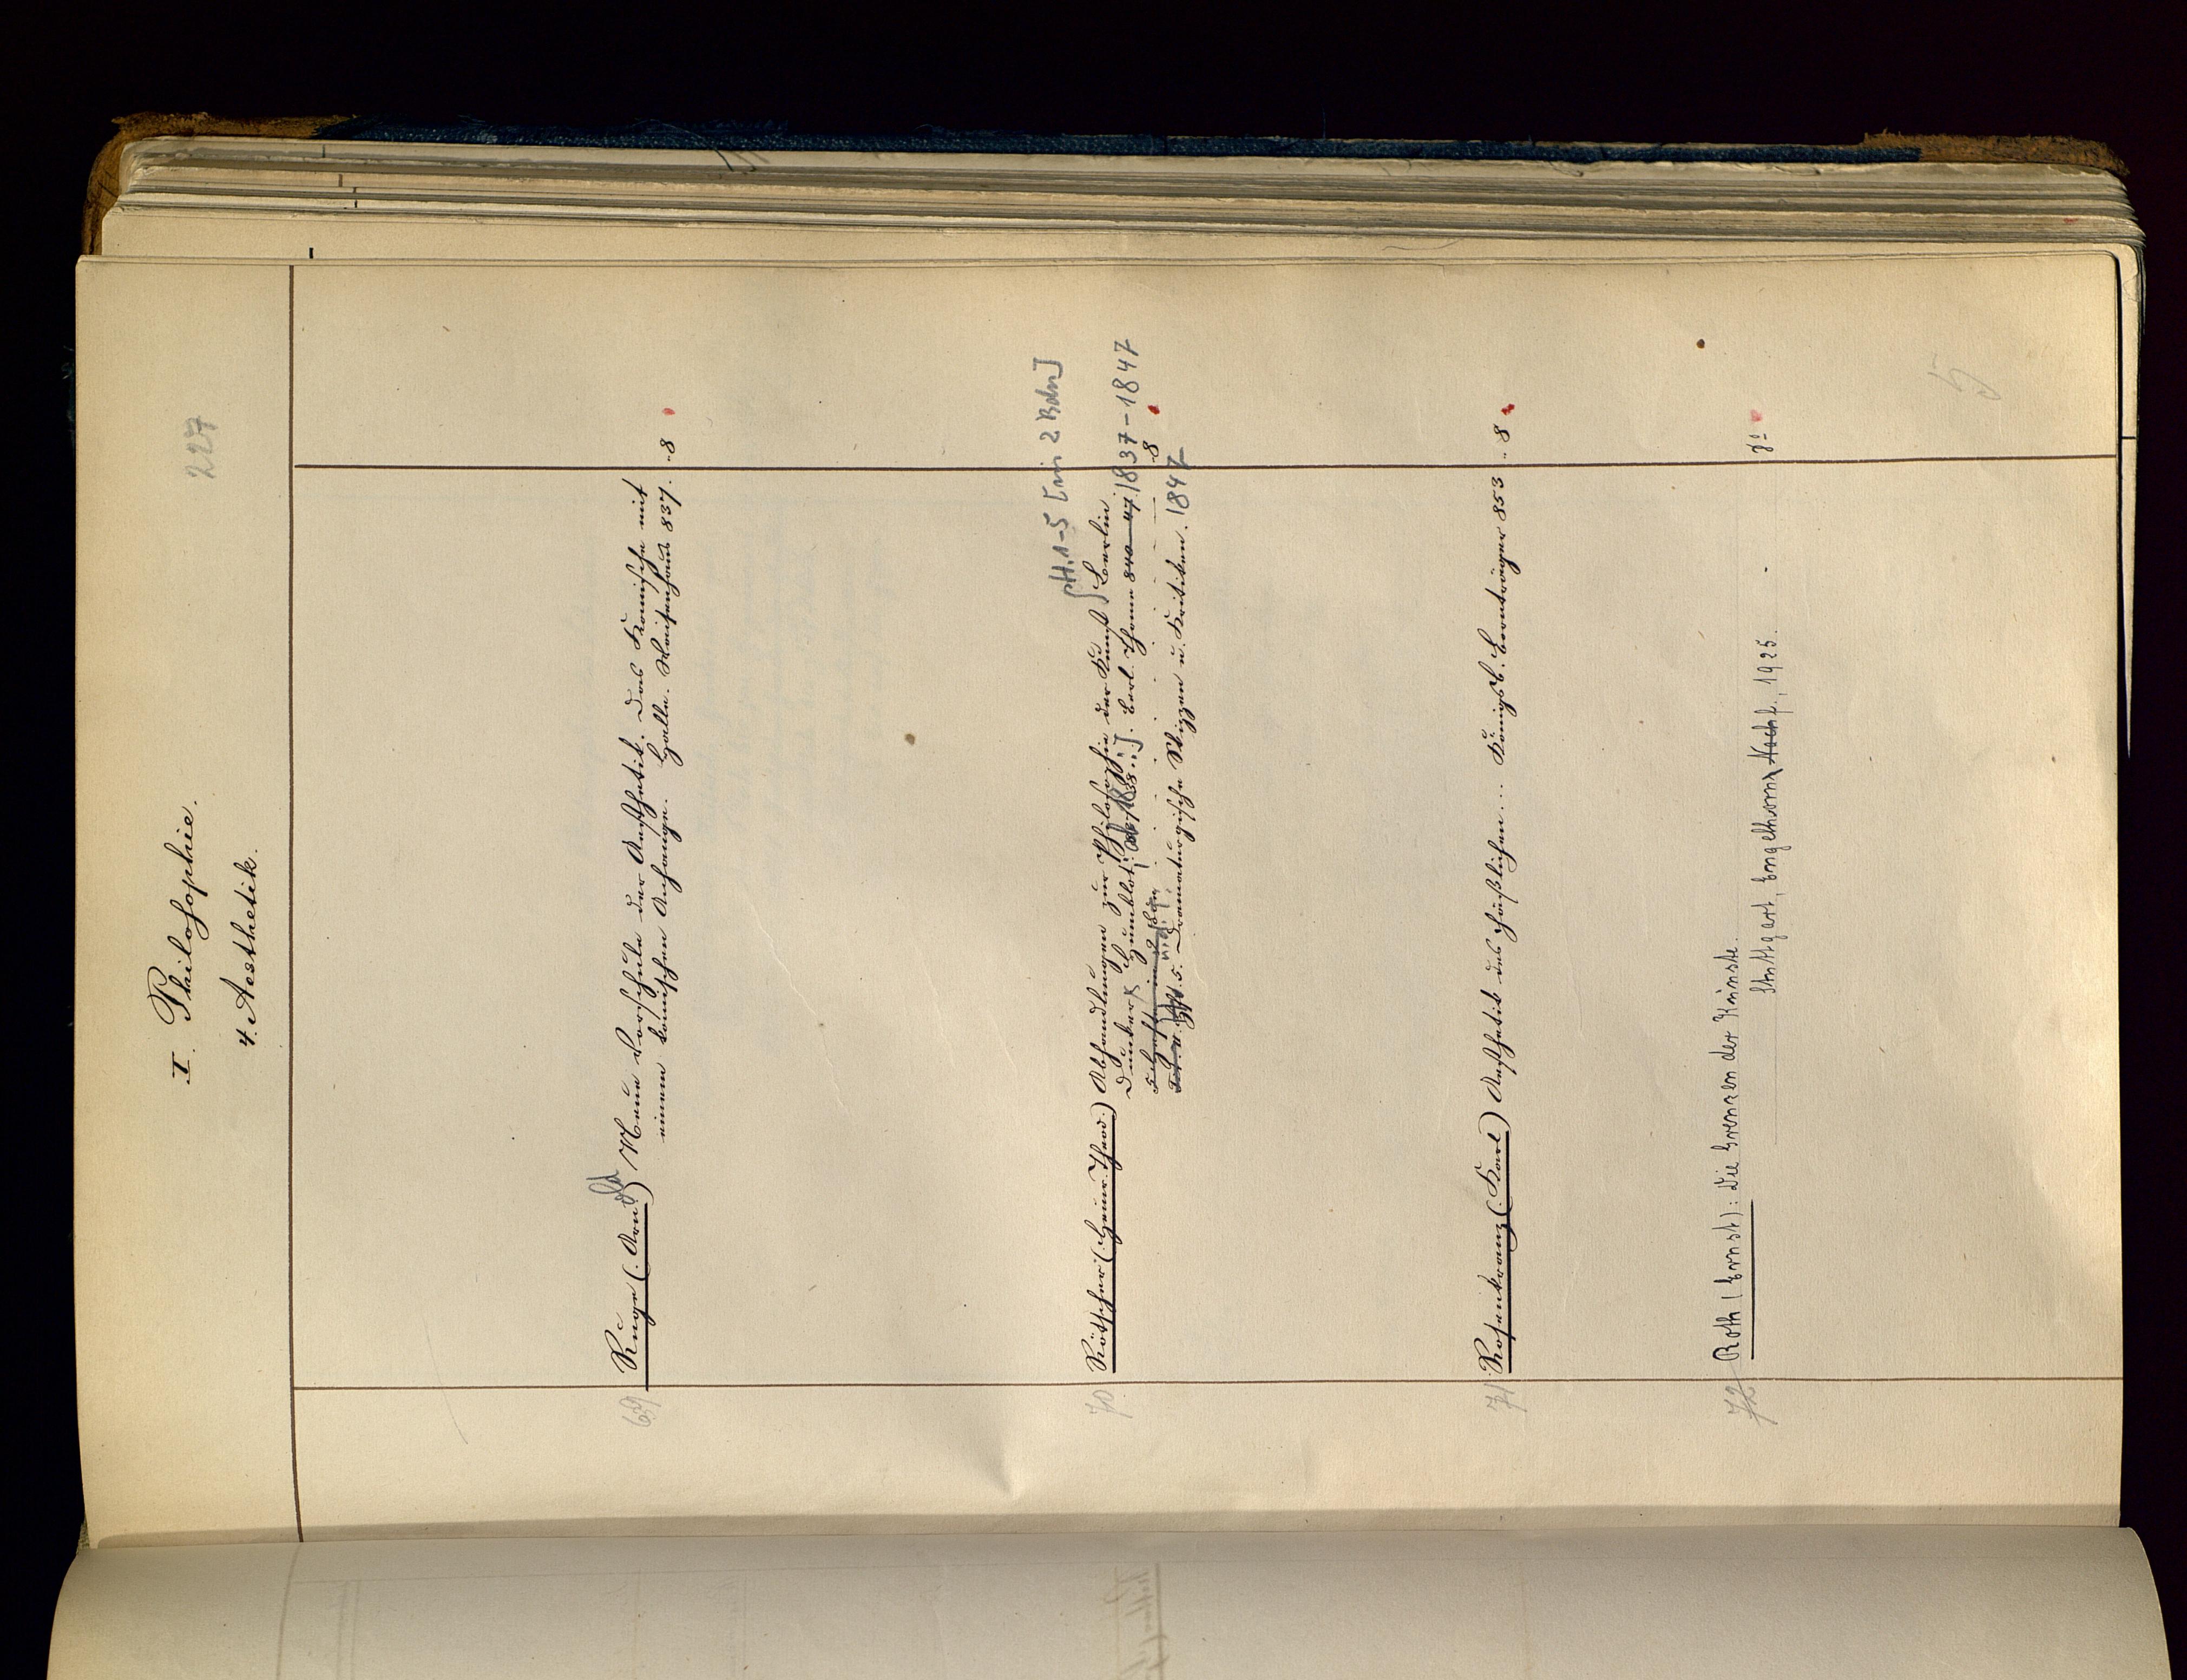 227
I. Philosophie.
4. Aesthetik.
69 Ruge (: Arnold) Neue Vorschule der Aesthetik. Das Komische mit
einem komischen Anhange. Halle. Waisenhaus 837. 8
H. 1-5 [in 2 Bdn]
70 Rötscher (: Heinr. Theod.) Abhandlungen zur Philosophie der Kunst Berlin
Duncker & Humblot, Berl. Thome 840-47. 1837-1847
8
5. Dramaturgische Skizzen u. Kritiken. 1847
71 Rosenkranz (: Karl) Aesthetik des Häßlichen... Königsb. Bornträger 853 .. 8
72 Roth (Ernst): Die Grenzen der Künste.
Stuttgart, Engelhorn Nachf. 1925. 8°
5